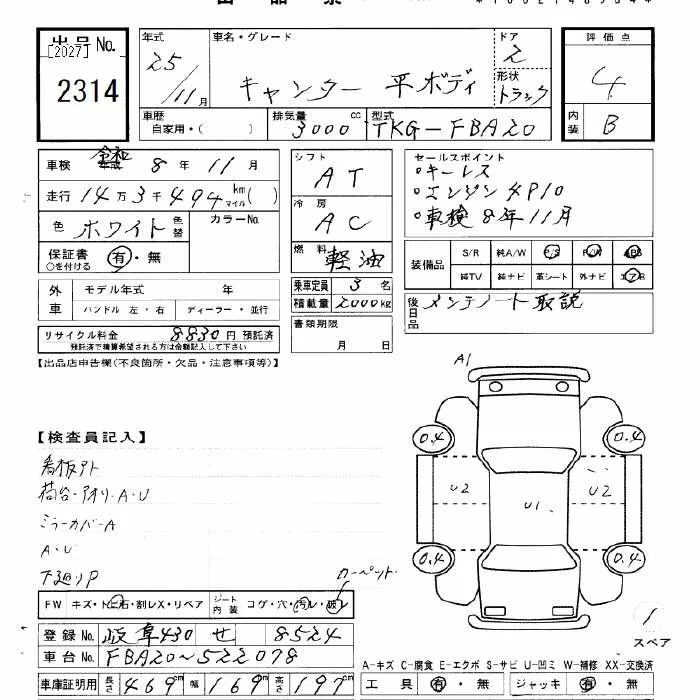 出品No.
[2027]
2314
年式
25/11月
車名・グレード
キャンター 平ボディ
ドア
2
形状
トラック
評価点
4
内装
B
車歴
自家用・( )
排気量
3000cc
型式
TKG-FBA20
車検 令和 8年 11月
走行 14万3千494km マイル( )
色 ホワイト 色替
カラーNo.
保証書 有・無
○を付ける
シフト
AT
冷房
AC
燃料
軽油
セールスポイント
○キーレス
○エンジン4P10
○車検8年11月
装備品 S/R 純A/W P/S P/W ABS
純TV 純ナビ 革シート 外ナビ エアB
外車 モデル年式 年
ハンドル 左・右 ディーラー・並行
乗車定員 3名
積載量 2000kg
後日品
メンテノート 取説
リサイクル料金 8830円 預託済
預託済で積算希望される方は金額記入して下さい
書類期限
月 日
【出品店申告欄(不良箇所・欠品・注意事項等)】
A1
0.4 0.4
U2 U1 U2
0.4 0.4
【検査員記入】
看板アト
荷台・アオリ・A・U
ミラーカバーA
A・U
下廻りP
カーペット
FW キズ・トビ石・割レX・リペア
シート内装 コゲ・穴・汚レ・破レ
登録No. 岐阜430 せ 8524
車台No. FBA20~522078
車庫証明用 長さ 469cm 幅 169cm 高さ 197cm
1
スペア
A-キズ C-腐食 E-エクボ S-サビ U-凹ミ W-補修 XX-交換済
工具 有・無 ジャッキ 有・無